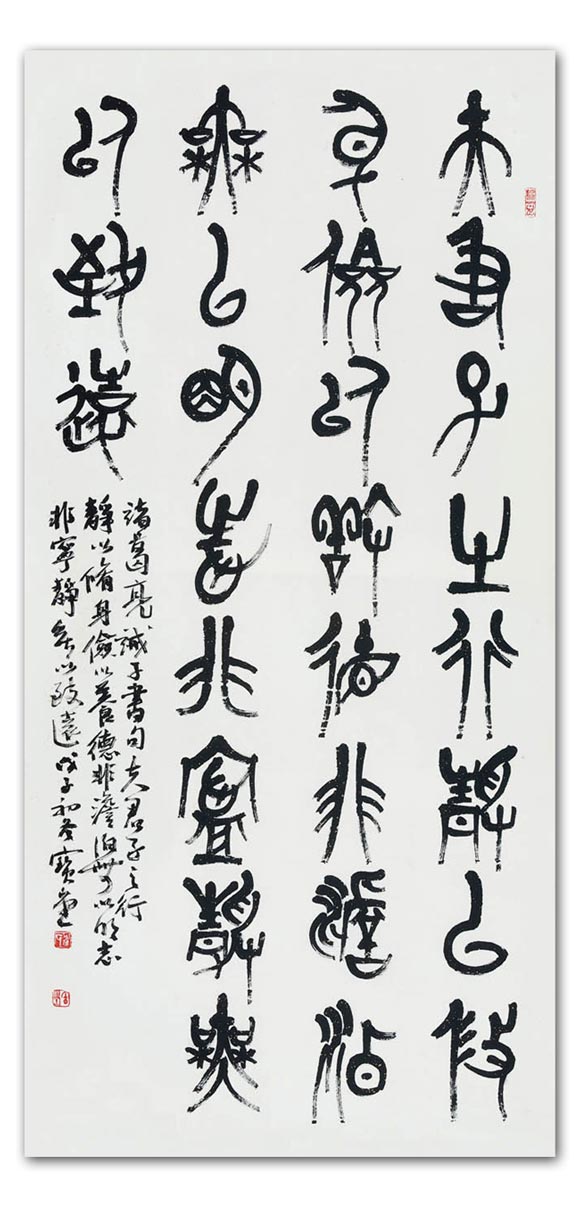 夫君子之行靜以修
身儉以養德非澹泊
無以明志非寧靜無
以致遠
諸葛亮誡子書句夫君子之行
靜以脩身儉以養德非澹泊無以明志
非寧靜無以致遠戊子初冬寶